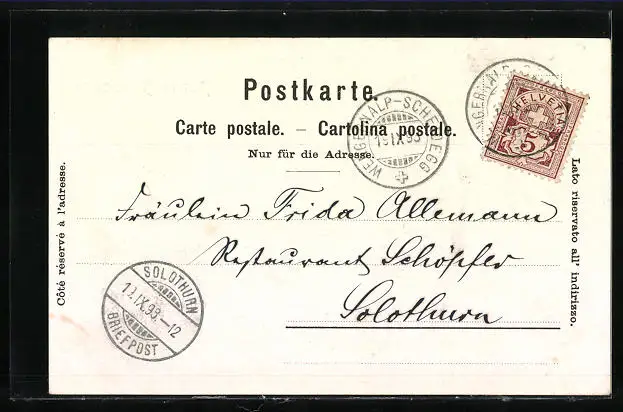 Postkarte.
Carte postale. – Cartolina postale.
Nur für die Adresse.
WENGERNALP-SCHEIDEGG
IX 93
HELVETIA
5
Côté réservé à l'adresse.
Lato riservato all' indirizzo.
Fräulein Frida Allemann
Restaurant Schöpfer
Solothurn
SOLOTHURN
IX.93.-12
BRIEFPOST